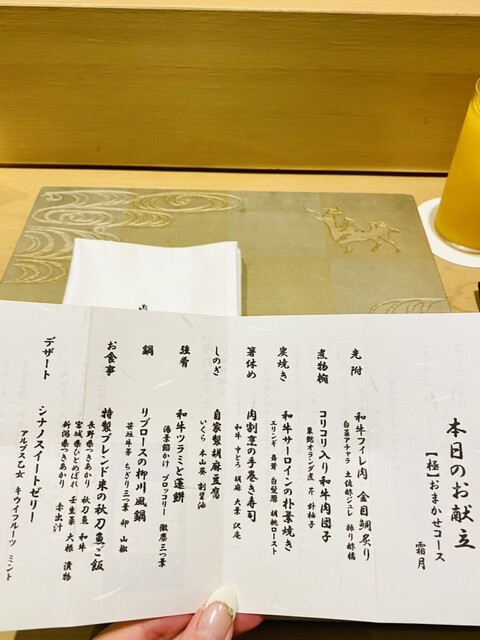 本日のお献立
【極】おまかせコース
霜月
先附
和牛フィレ肉 金目鯛炙り
白菜アチャラ 土佐酢ジュレ 振り酢橘
煮物椀
コリコリ入り和牛肉団子
聚楽オランダ煮 芹 針柚子
炭焼き
和牛サーロインの朴葉焼き
エリンギ 舞茸 白髪葱 胡桃ロースト
箸休め
肉割烹の手巻き寿司
和牛 中とろ 胡麻 大葉 沢庵
しのぎ
自家製胡麻豆腐
いくら 本山葵 割醤油
強肴
和牛ツラミと蓮餅
湯葉餡かけ ブロッコリー 微塵三つ葉
鍋
リブロースの柳川風鍋
笹垣牛蒡 ちぎり三つ葉 卵 山椒
お食事
特製ブレンド米の秋刀魚ご飯
長野県つきあかり 秋刀魚 和牛
宮城県ひとめぼれ 壬生菜 大根 漬物
新潟県つきあかり 赤出汁
デザート
シナノスイートゼリー
アルプス乙女 キウイフルーツ ミント